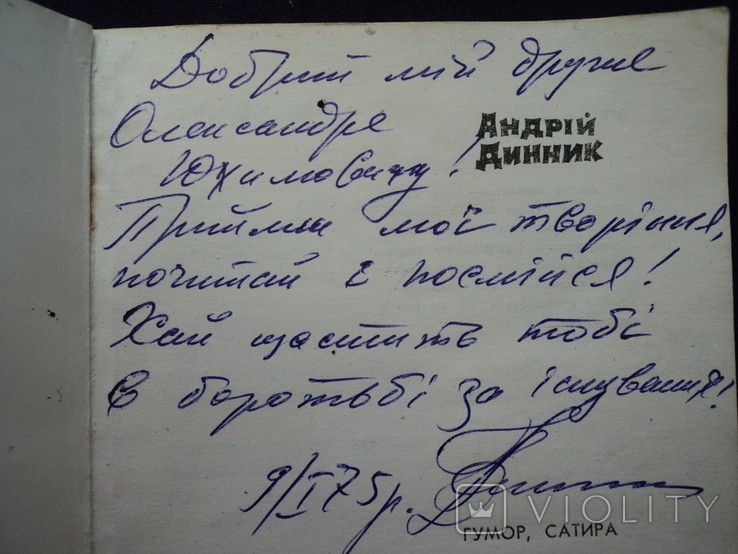 Добрий мій друже
Олександре
Юхимовичу!
АНДРІЙ
ДИННИК
Прийми мої творіння,
почитай і посмійся!
Хай щастить тобі
в боротьбі за існування!
9/I 75 р.
VIOLITY
ГУМОР, САТИРА